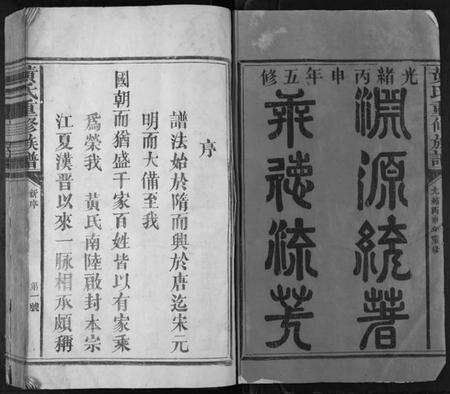 黃氏重修族譜
光緒丙申年五修
淵源統著
德流芳
序
譜法始於隋而興於唐迄宋元
明而大備至我
國朝而猶盛千家百姓皆以有家乘
為榮我 黃氏南陸啟封本宗
江夏漢晉以來一脉相承頗稱
黃氏重修族譜
新序
第一號